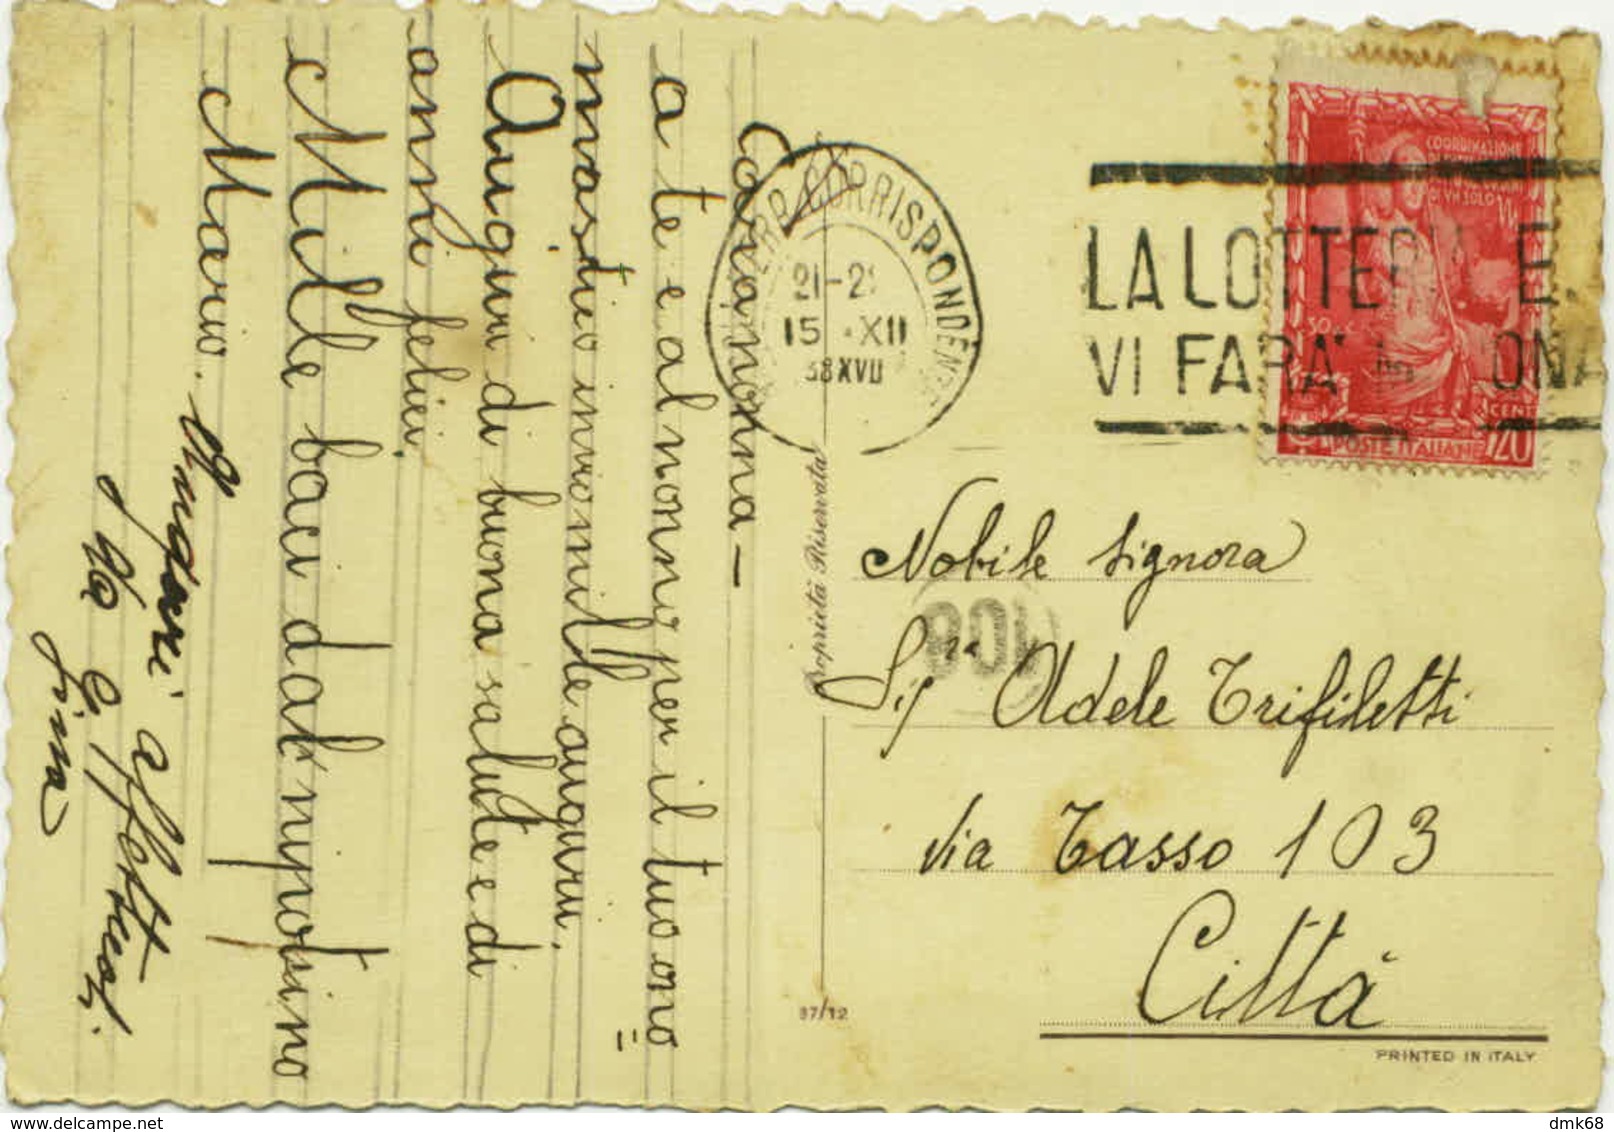 Cara nonna —
a te e al nonno per il tuo ono=
mastico invio mille auguri.
Auguri di buona salute e di
anni felici.
Mille baci dal nipotino
Mario.
Auguri affettuosi.
Gina
CORRISPONDENZE
15 XII
38 XVII
LA LOTTERIA E.
VI FARA'
COORDINAZIONE
DI UN SOLO
POSTE ITALIANE
CENT 20
Proprietà Riservata
Nobile Signora
Sig.ra Adele Trifiletti
Via Tasso 103
Città
37/12
PRINTED IN ITALY
delcampe.net
dmk68